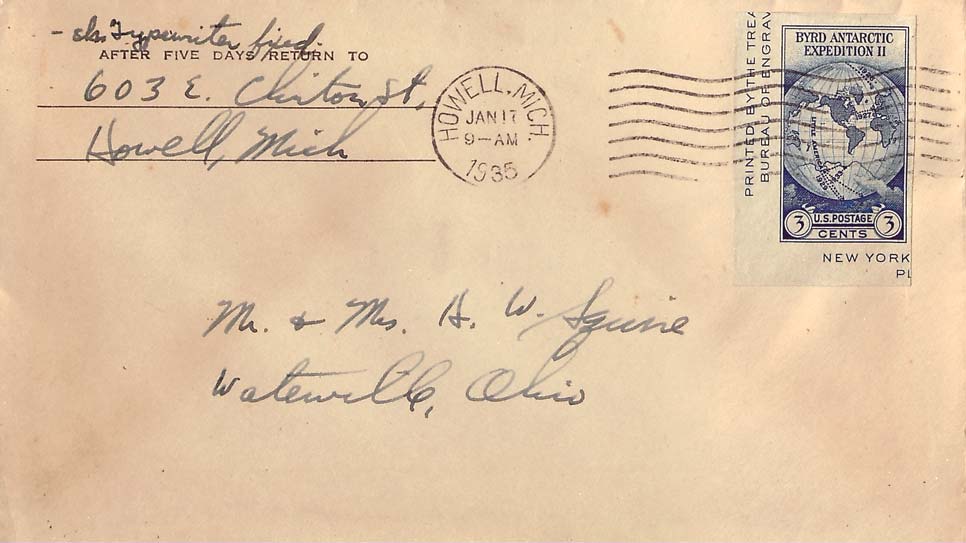 Typewriter fixed.
AFTER FIVE DAYS RETURN TO
603 E. Clinton St,
Howell, Mich
HOWELL, MICH.
JAN 17
9-AM
1935
PRINTED BY THE TREA
BUREAU OF ENGRAV
BYRD ANTARCTIC
EXPEDITION II
1927
LITTLE AMERICA
3 U.S. POSTAGE 3
CENTS
NEW YORK
PL
Mr. & Mrs. H. W. Squire
Waterville, Ohio